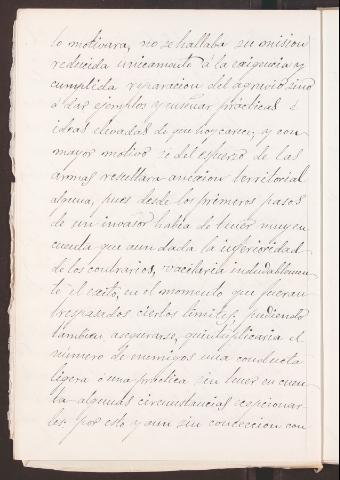 lo motivara, no se hallaba su mision
reducida unicamente á la exigencia y
cumplida reparacion del agravio sinó
á dar ejemplos y enseñar prácticas é
ideas elevadas de que hoy carece, y con
mayor motivo si del esfuerzo de las
armas resultara anexion territorial
alguna, pues desde los primeros pasos
de un invasor habia de tener muy en
cuenta que aun dada la inferioridad
de los contrarios, vacilaria indudablemen-
te el exito, en el momento que fueran
traspasados ciertos límites, pudiendo
tambien asegurarse, quintuplicaria el
número de enemigos una conducta
ligera ó una práctica sin tener en cuen-
ta algunas circunstancias excpcionar
les: por esto y aun sin coneccion con